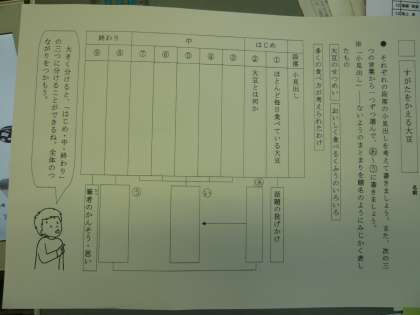 すがたをかえる大豆
名前
● それぞれの段落の小見出しを考えて書きましょう。また、次の三
つの言葉から一つずつ選んで、あ～うに書きましょう。
※「小見出し」…ないようのまとまりを題名のようにみじかく表し
たもの
大豆のせつめい
おいしく食べるくふうのいろいろ
多くの食べ方が考えられたわけ
段落
小見出し
はじめ
中
終わり
①
ほとんど毎日食べている大豆
②
大豆とは何か
③
④
⑤
⑥
⑦
⑧
⑨
話題の投げかけ
あ
い
う
筆者のかんそう・思い
大きく分けると、「はじめ・中・終わり」
の三つに分けることができるね。全体のつ
ながりをつかもう。